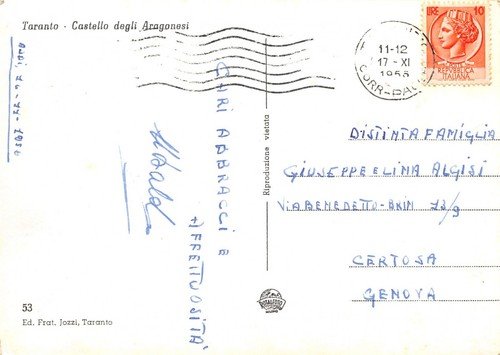 Taranto - Castello degli Aragonesi
11-12
17 - XI
CORR. PAC
LIRE 10
REPVBBLICA
ITALIANA
CARI ABBRACCI E
AFFETTUOSITÀ
Ubaldo
Riproduzione vietata
DISTINTA FAMIGLIA
GIUSEPPE ELINA ALGISI
VIA BENEDETTO-BRIN 73/9
CERTOSA
GENOVA
53
Ed. Frat. Jozzi, Taranto